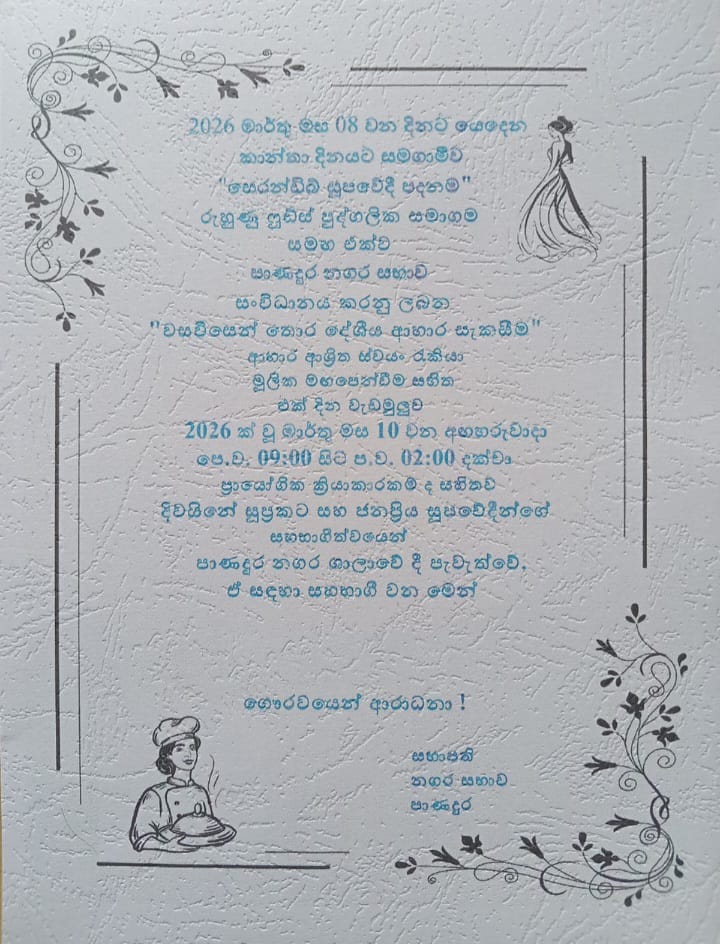 2026 මාර්තු මස 08 වන දිනට යෙදෙන
කාන්තා දිනයට සමගාමීව
"සෙරන්ඩිබ් සූපවේදී පදනම"
රුහුණු ෆුඩ්ස් පුද්ගලික සමාගම
සමඟ එක්ව
පාණදුර නගර සභාව
සංවිධානය කරනු ලබන
"වසවිසෙන් තොර දේශීය ආහාර සැකසීම"
ආහාර ආශ්‍රිත ස්වයං රැකියා
මූලික මඟපෙන්වීම සහිත
එක් දින වැඩමුලුව
2026 ක් වූ මාර්තු මස 10 වන අඟහරුවාදා
පෙ.ව. 09:00 සිට ප.ව. 02:00 දක්වා
ප්‍රායෝගික ක්‍රියාකාරකම් ද සහිතව
දිවයිනේ සුප්‍රකට සහ ජනප්‍රිය සූපවේදීන්ගේ
සහභාගීත්වයෙන්
පාණදුර නගර ශාලාවේ දී පැවැත්වේ.
ඒ සඳහා සහභාගී වන මෙන්
ගෞරවයෙන් ආරාධනා !
සභාපති
නගර සභාව
පාණදුර